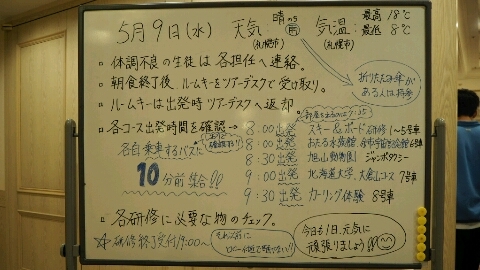 5月9日(水) 天気 晴のち雨 気温: 最高 18℃
(札幌市) (札幌市) 最低 8℃
折りたたみ傘がある人は持参
▫ 体調不良の生徒は各担任へ連絡。
▫ 朝食終了後、ルームキーをツアーデスクで受け取り。
▫ ルームキーは出発時ツアーデスクへ返却。
▫ 各コース出発時間を確認→
各自乗車するバスに
10分前集合!!!
8:00出発 スキー&ボード研修 1~5号車
8:00出発 おたる水族館、
8:30出発 旭山動物園 ジャンボタクシー
9:00出発 北海道大学、大倉山コース 7号車
9:30出発 カーリング体験 8号車
▫ 各研修に必要な物のチェック。
☆研修終了受付 19:00~
今日も1日、元気に
頑張りましょう!!